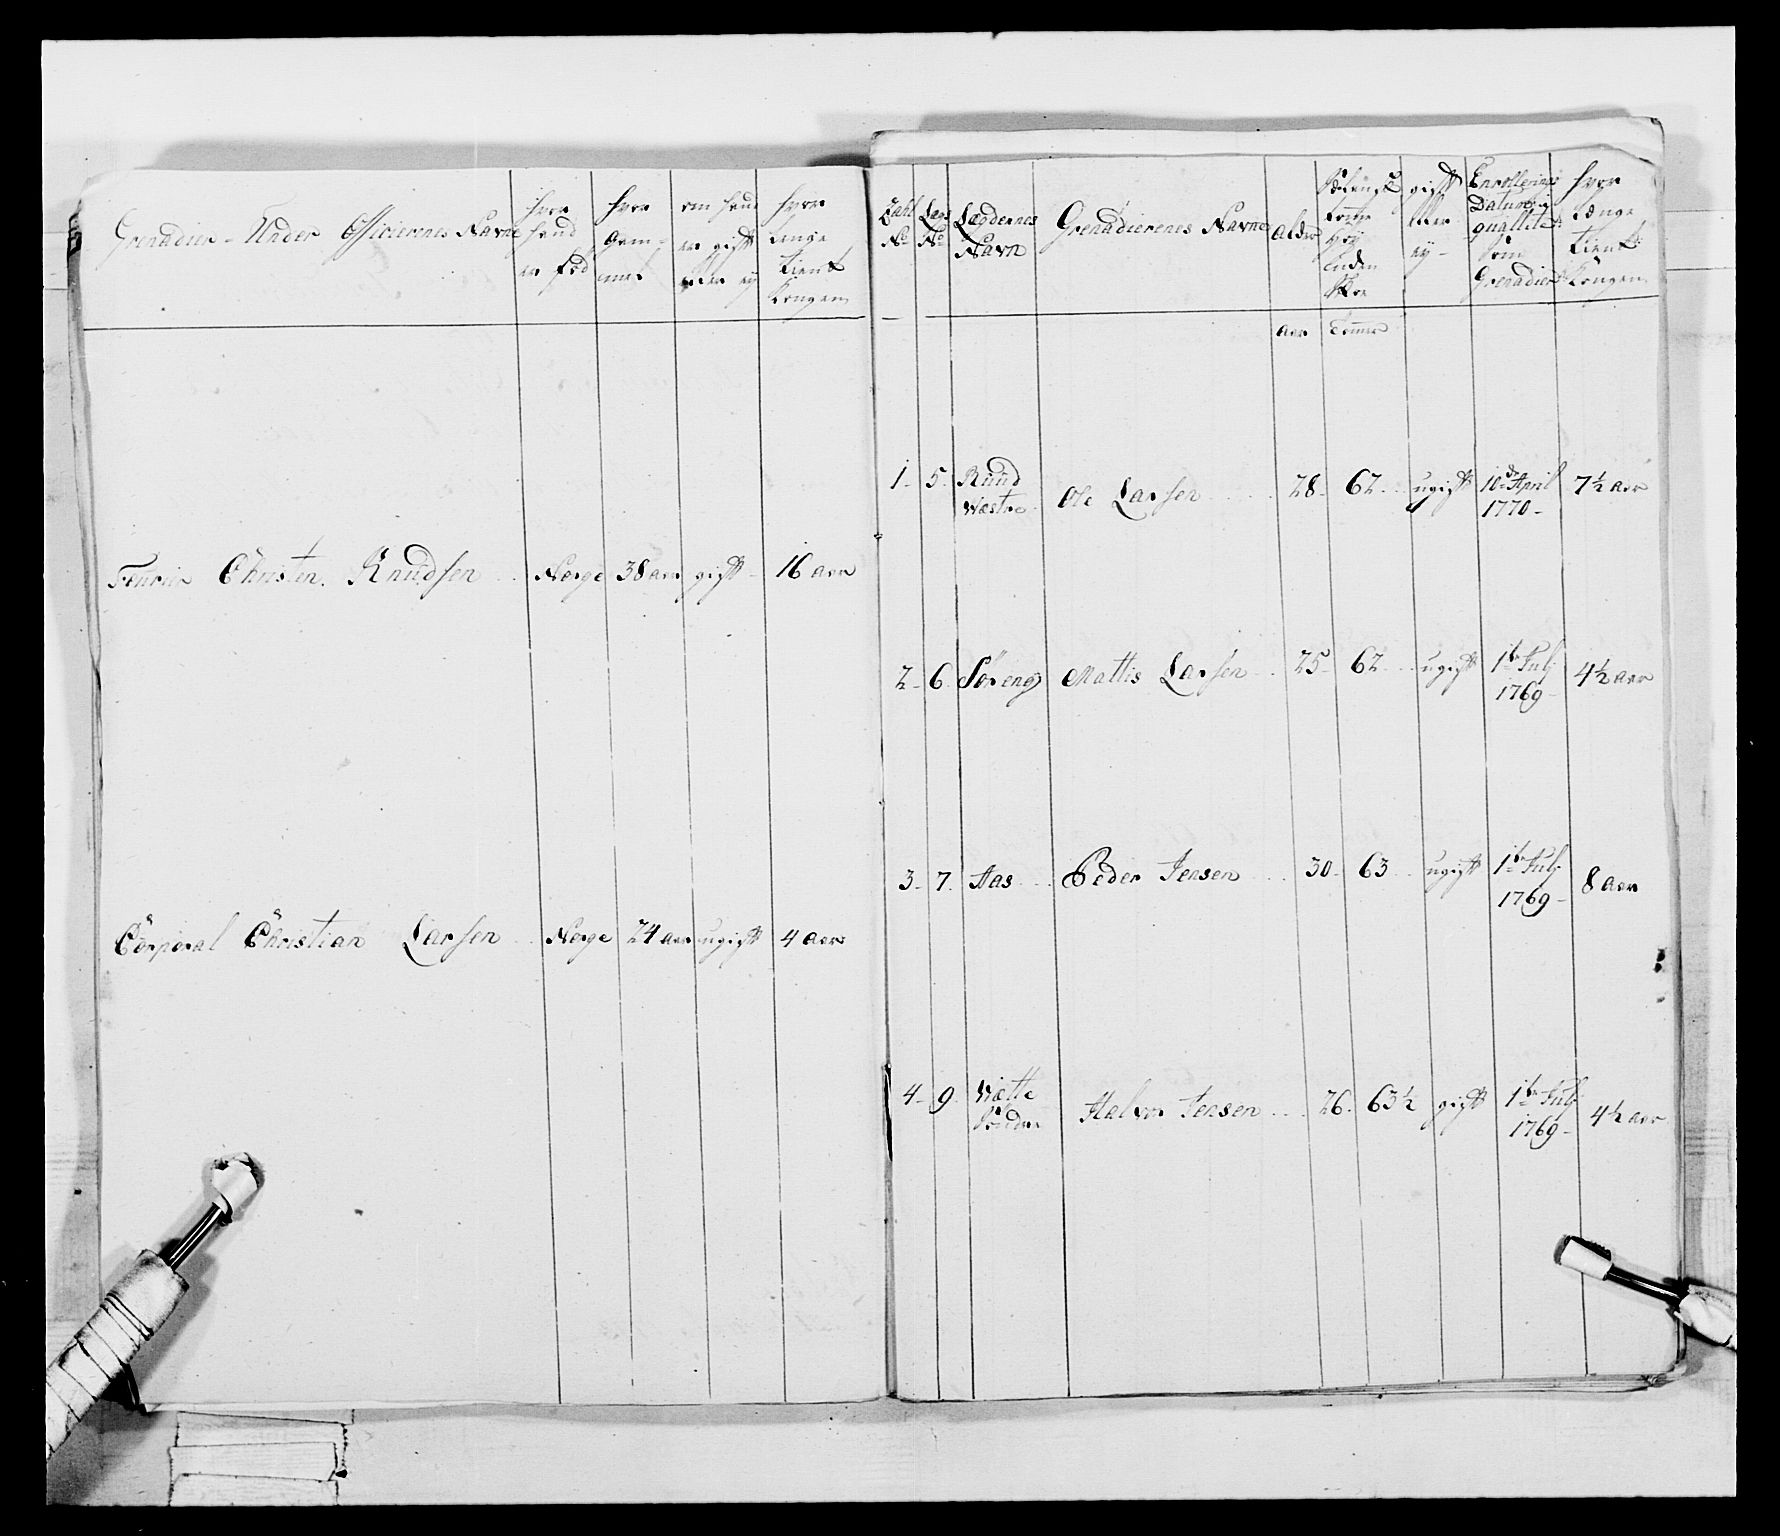 Grenadier-Under Officierenes Navne
hvor hand er fød
hvor Gam-mel
om hand er gift eller ey
hvor lenge tient Kongen
Fourier Christen Knudsen Norge 38 aar gift 16 aar
Corporal Christian Larsen Norge 24 aar ugift 4 aar
Tahl No
Lægs No
Lægdernes Navn
Grenadierenes Navne
Alder
Høy uden Skoe
gift eller ey
Enrollerings Datum qualitet som Grenadier
hvor længe tient Kongen
aar Tommer
1 5 Ruud Westre Ole Larsen 28 62 ugift 10de April 1770 7½ aar
2 6 Søreng Mattis Larsen 25 62 ugift 1te Julj 1769 4½ aar
3 7 Aas Peder Jensen 30 63 ugift 1te Julj 1769 8 aar
4 9 Wætte Søndre Halvor Jensen 26 63½ gift 1te Julj 1769 4½ aar